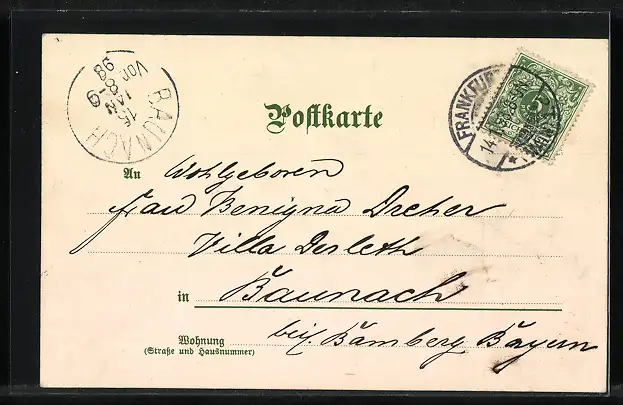 Postkarte
BAUNACH
15
JAN
Vor. 8-9
98
FRANKFURT
14
5
An Wohlgeboren
Frau Benigna Dreher
Villa Desleth
in Baunach
Wohnung
(Straße und Hausnummer)
bei Bamberg Bayern